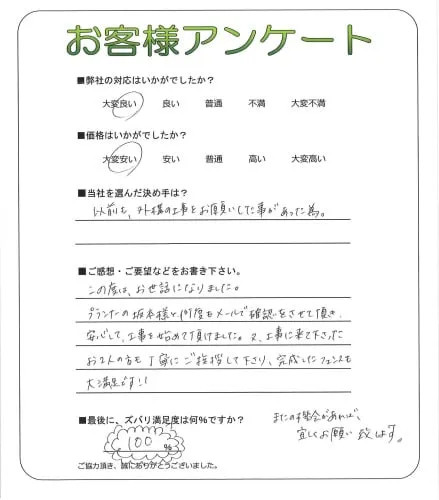 お客様アンケート
■弊社の対応はいかがでしたか?
大変良い 良い 普通 不満 大変不満
■価格はいかがでしたか?
大変安い 安い 普通 高い 大変高い
■当社を選んだ決め手は?
以前も、外構の工事をお願いした事があった為。
■ご感想・ご要望などをお書き下さい。
この度は、お世話になりました。
プランナーの坂本様と何度もメールで確認をさせて頂き、
安心して、工事を始めて頂けました。又、工事に来て下さった
お2人の方も丁寧にご挨拶して下さり、完成したフェンスも
大満足です!!
■最後に、ズバリ満足度は何%ですか?
100 %
またの機会があれば、
宜しくお願い致します。
ご協力頂き、誠にありがとうございました。